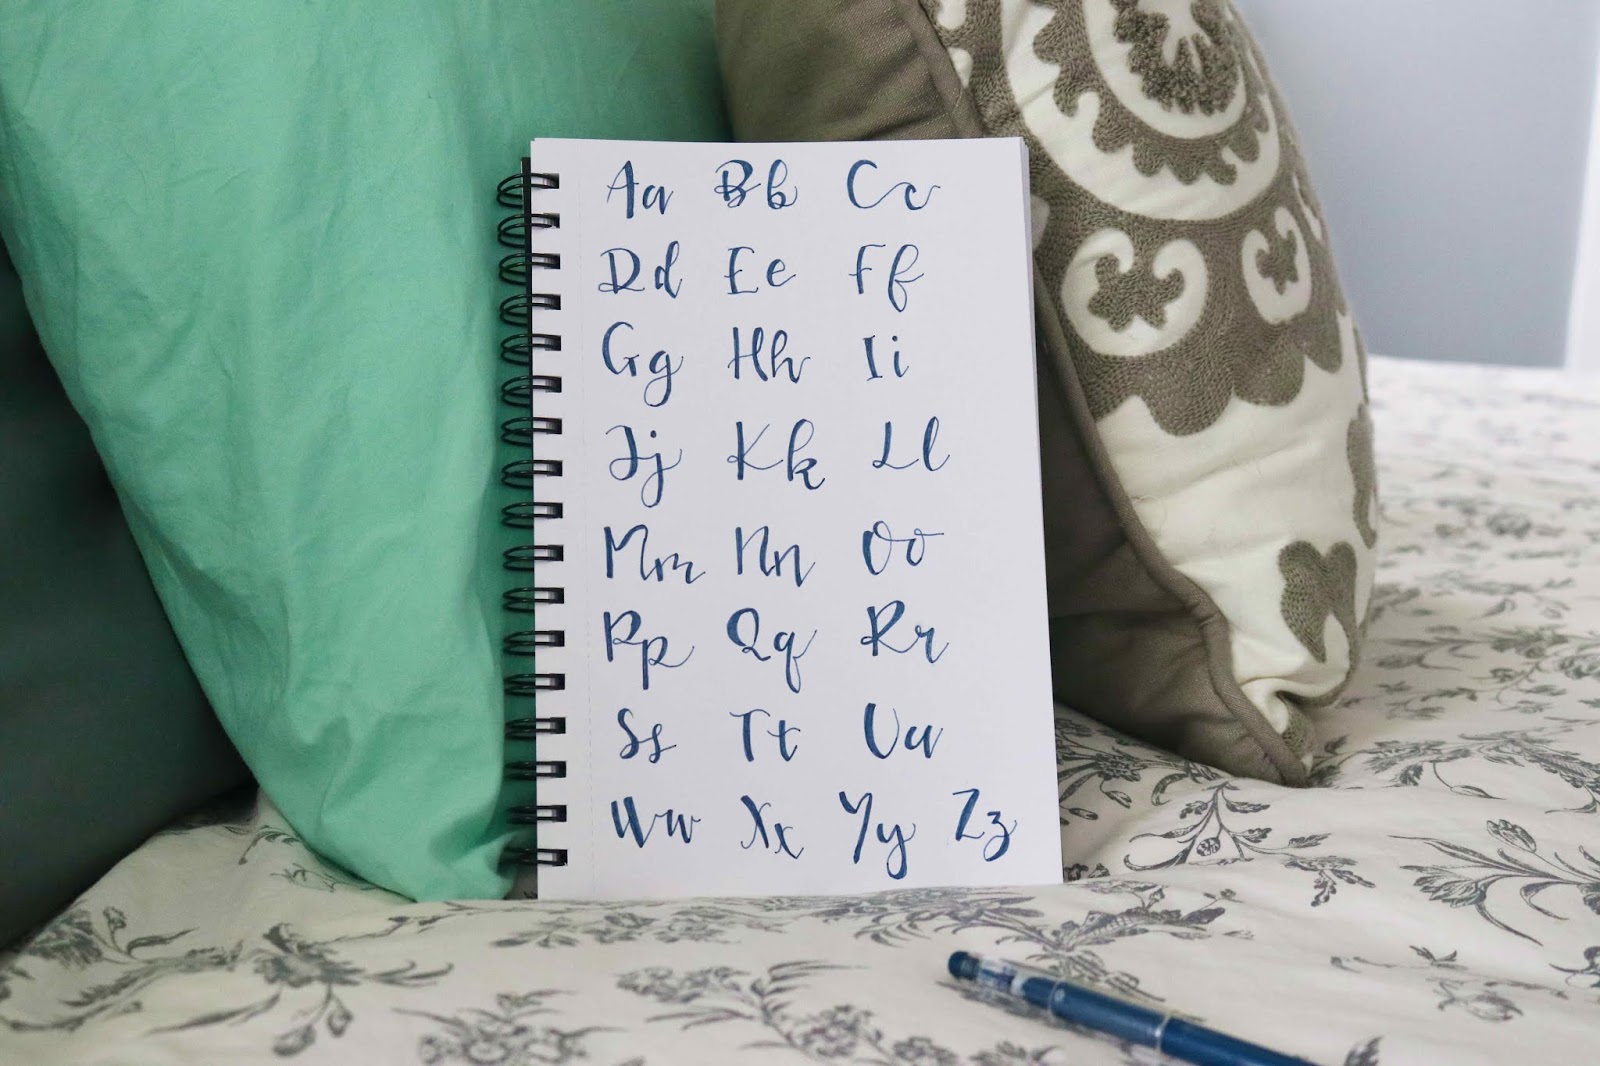 Aa Bb Cc
Dd Ee Ff
Gg Hh Ii
Jj Kk Ll
Mm Nn Oo
Pp Qq Rr
Ss Tt Uu
Ww Xx Yy Zz